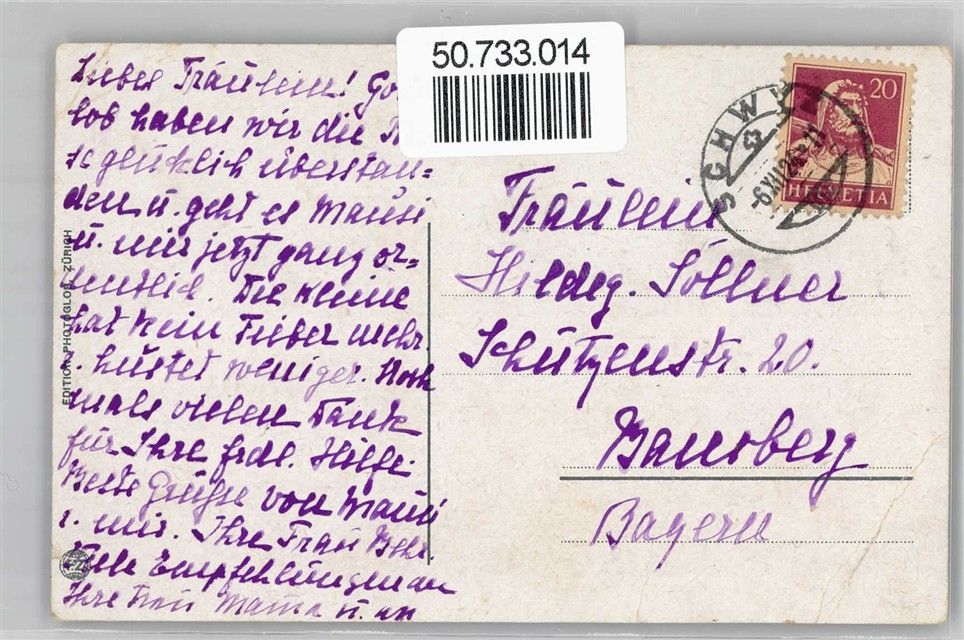 50.733.014
Liebes Fräulein! Go
lob haben wir die R
so glücklich überstan=
den u. geht es Mausi
u. mir jetzt ganz or=
dentlich. Die Kleine
hat kein Fieber mehr
u. hustet weniger. Noch
mals vielen Dank
für Ihre frdl. Hilfe.
Beste Grüße von Mausi
u. mir. Ihre Frau
Viele Empfehlungen an
Ihre Frau Mama u. an
EDITION PHOTOGLOB, ZÜRICH
20
HELVETIA
SCHWYZ
6.XII.26
Fräulein
Hildeg. Söllner
Schützenstr. 20.
Bamberg
Bayern